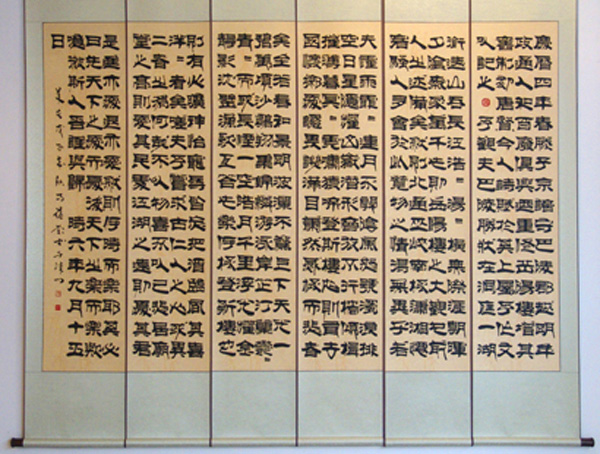 慶曆四年春滕子京謫守巴陵郡越明年
政通人和百廢具興乃重修岳陽樓增其
舊制刻唐賢今人詩賦於其上屬予作文
以記之 予觀夫巴陵勝狀在洞庭一湖
銜遠山吞長江浩〻湯〻橫無際涯朝暉
夕陰氣象萬千此則岳陽樓之大觀也前
人之述備矣然則北通巫峽南極瀟湘遷
客騷人多會於此覽物之情得無異乎若
夫霪雨霏〻連月不開陰風怒號濁浪排
空日星隱曜山岳潛形商旅不行檣傾楫
摧薄暮冥〻虎嘯猿啼登斯樓也則有去
國懷鄉憂讒畏譏滿目蕭然感極而悲者
矣至若春和景明波瀾不驚上下天光一
碧萬頃沙鷗翔集錦鱗游泳岸芷汀蘭郁〻
青〻而或長煙一空皓月千里浮光躍金
靜影沈璧漁歌互答此樂何極登斯樓也
則有心曠神怡寵辱皆忘把酒臨風其喜
洋〻者矣嗟夫予嘗求古仁人之心或異
二者之為何哉不以物喜不以己悲居廟
堂之高則憂其民處江湖之遠則憂其君
是進亦憂退亦憂然則何時而樂耶其必
曰先天下之憂而憂後天下之樂而樂歟
噫微斯人吾誰與歸 時六年九月十五
日